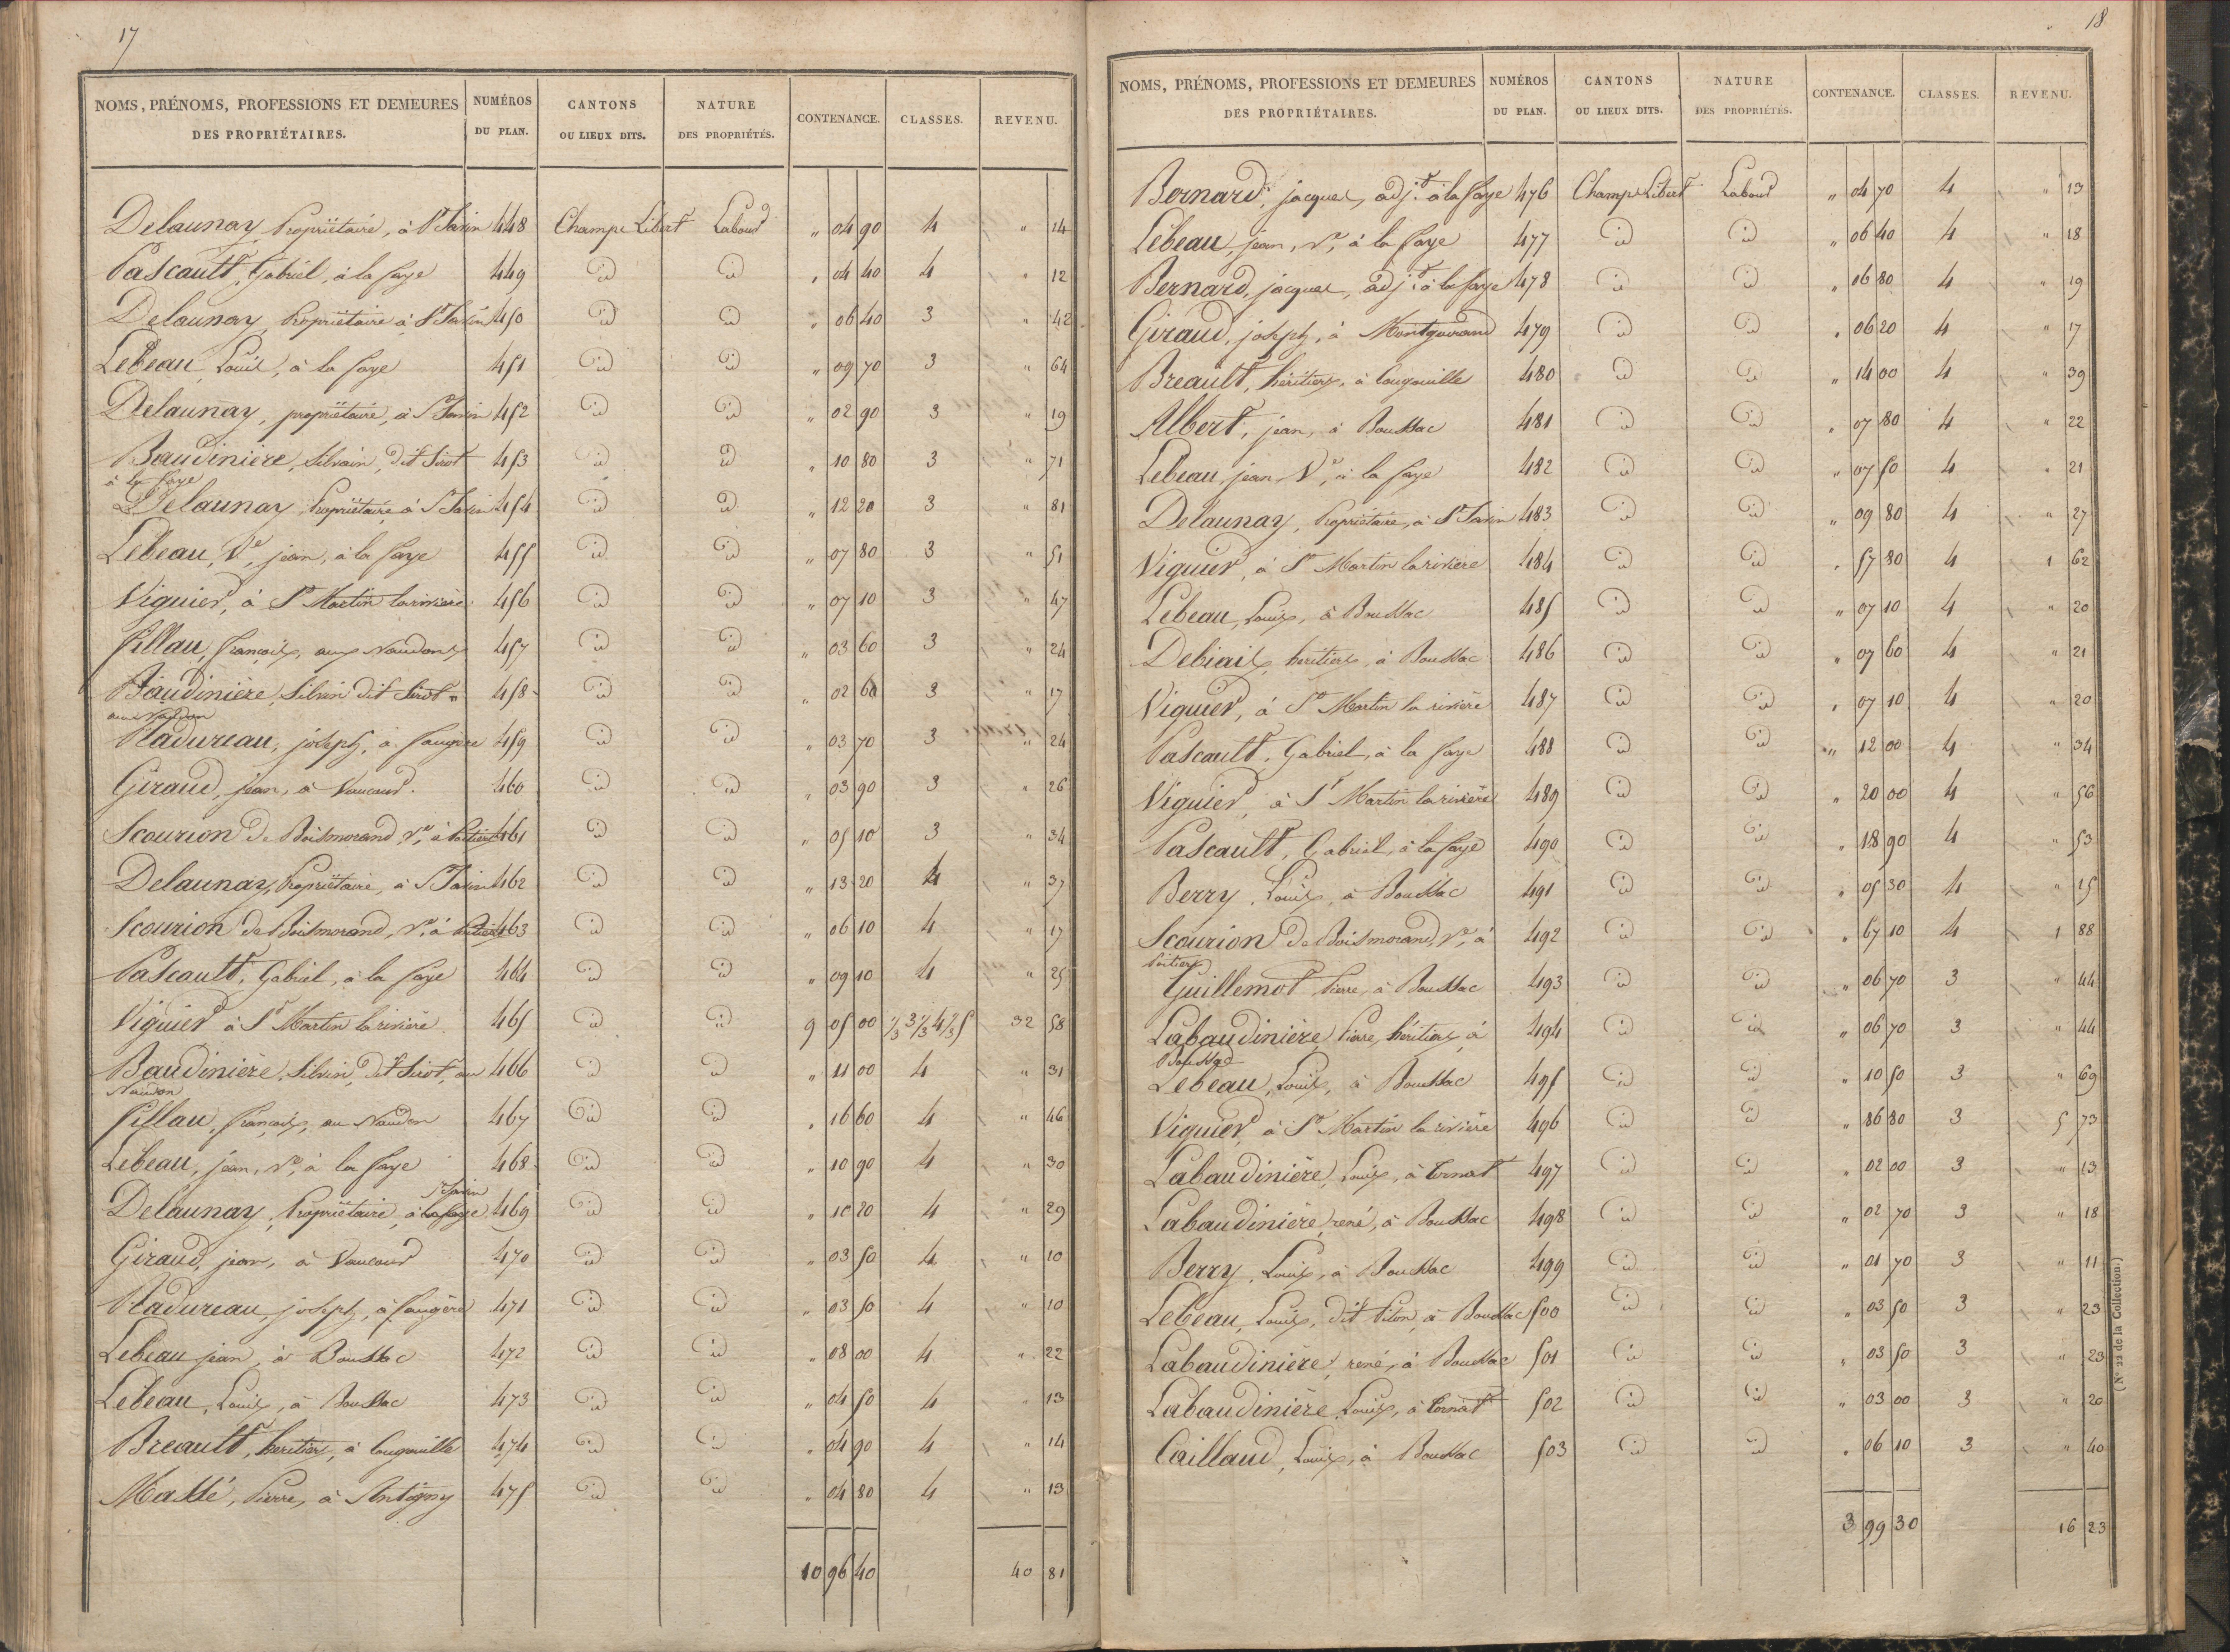 17
NOMS, PRÉNOMS, PROFESSIONS ET DEMEURES DES PROPRIÉTAIRES. NUMÉROS DU PLAN. CANTONS OU LIEUX DITS. NATURE DES PROPRIÉTÉS. CONTENANCE. CLASSES. REVENU.
Delaunay, Propriétaire, à St Savin 448 Champs Libert Labour " 04 90 4 " 14
Pascault, Gabriel, à la faye 449 id id " 04 40 4 " 12
Delaunay, Propriétaire à St Savin 450 id id " 06 40 3 " 42
Lebeau, Louis, à la faye 451 id id " 09 70 3 " 64
Delaunay, propriétaire, à St Savin 452 id id " 02 90 3 " 19
Baudinière, Silvain, dit Sirot 453 id id " 10 80 3 " 71
à la faye
Delaunay, Propriétaire à St Savin 454 id id " 12 20 3 " 81
Lebeau, Ve, jean, à la faye 455 id id " 07 80 3 " 51
Viguier, à St Martin larivière 456 id id " 07 10 3 " 47
fillau, françois, aux Naudons 457 id id " 03 60 3 " 24
Baudinière, Silvin dit Sirot 458 id id " 02 60 3 " 17
aux Naudon
Madureau, joseph, à faugère 459 id id " 03 70 3 " 24
Giraud, jean, à Vaucour 460 id id " 03 90 3 " 26
Scourion De Boismorand, Ve, à Poitiers 461 id id " 05 10 3 " 34
Delaunay, Propriétaire, à St Savin 462 id id " 13 20 4 " 37
Scourion de Boismorand, Ve, à Poitiers 463 id id " 06 10 4 " 17
Pascault, Gabriel, à la faye 464 id id " 09 10 4 " 25
Viguier à St Martin la rivière 465 id id 9 05 00 1/3 3 1/3 4 2/3 5 32 58
Baudinière, Silvin, dit Sirot, au 466 id id " 11 00 4 " 31
Naudon
fillau, françois, au Naudon 467 id id " 16 60 4 " 46
Lebeau, jean, Ve, à la faye 468 id id " 10 90 4 " 30
St Savin
Delaunay, Propriétaire, à la faye 469 id id " 10 20 4 " 29
Giraud, jean, à Vaucour 470 id id " 03 50 4 " 10
Madureau, joseph, à faugère 471 id id " 03 50 4 " 10
Lebeau jean, à Boussac 472 id id " 08 00 4 " 22
Lebeau, Louis, à Boussac 473 id id " 04 50 4 " 13
Breault, heritiers, à Cougouille 474 id id " 04 90 4 " 14
Massé, Pierre, à Antigny 475 id id " 04 80 4 " 13
10 96 40 40 81
18
NOMS, PRÉNOMS, PROFESSIONS ET DEMEURES DES PROPRIÉTAIRES. NUMÉROS DU PLAN. CANTONS OU LIEUX DITS. NATURE DES PROPRIÉTÉS. CONTENANCE. CLASSES. REVENU.
Bernard, jacques, adjt à la faye 476 Champs Libert Labour " 04 70 4 " 13
Lebeau, jean, Ve, à la faye 477 id id " 06 40 4 " 18
Bernard, jacques, adjt à la faye 478 id id " 06 80 4 " 19
Giraud, joseph, à 479 id id " 06 20 4 " 17
Breault, héritiers, à Cougouille 480 id id " 14 00 4 " 39
Albert, jean, à Boussac 481 id id " 07 80 4 " 22
Lebeau, jean, Ve, à la faye 482 id id " 07 50 4 " 21
Delaunay, Propriétaire, à St Savin 483 id id " 09 80 4 " 27
Viguier, à St Martin larivière 484 id id " 57 80 4 1 62
Lebeau, Louis, à Boussac 485 id id " 07 10 4 " 20
Debiais, heritiers, à Boussac 486 id id " 07 60 4 " 21
Viguier, à St Martin la rivière 487 id id " 07 10 4 " 20
Pascault, Gabriel, à la faye 488 id id " 12 00 4 " 34
Viguier, à St Martin larivière 489 id id " 20 00 4 " 56
Pascault, Gabriel, à la faye 490 id id " 18 90 4 " 53
Berry, Louis, à Boussac 491 id id " 05 30 4 " 15
Scourion De Boismorand, Ve, à 492 id id " 67 10 4 1 88
Poitiers
Guillemot Pierre, à Boussac 493 id id " 06 70 3 " 44
Labaudinière, Pierre, héritiers, à 494 id id " 06 70 3 " 44
Boussac
Lebeau, Louis, à Boussac 495 id id " 10 50 3 " 69
Viguier, à St Martin la rivière 496 id id " 86 80 3 5 73
Labaudinière, Louis, à 497 id id " 02 00 3 " 13
Labaudinière, rené, à Boussac 498 id id " 02 70 3 " 18
Berry, Louis, à Boussac 499 id id " 01 70 3 " 11
Lebeau, Louis, dit Piton, à Boussac 500 id id " 03 50 3 " 23
Labaudinière, rené, à Boussac 501 id id " 03 50 3 " 23
Labaudinière, Louis, à 502 id id " 03 00 3 " 20
Caillaud, Louis, à Boussac 503 id id " 06 10 3 " 40
3 99 30 16 23
(N° 22 de la Collection.)